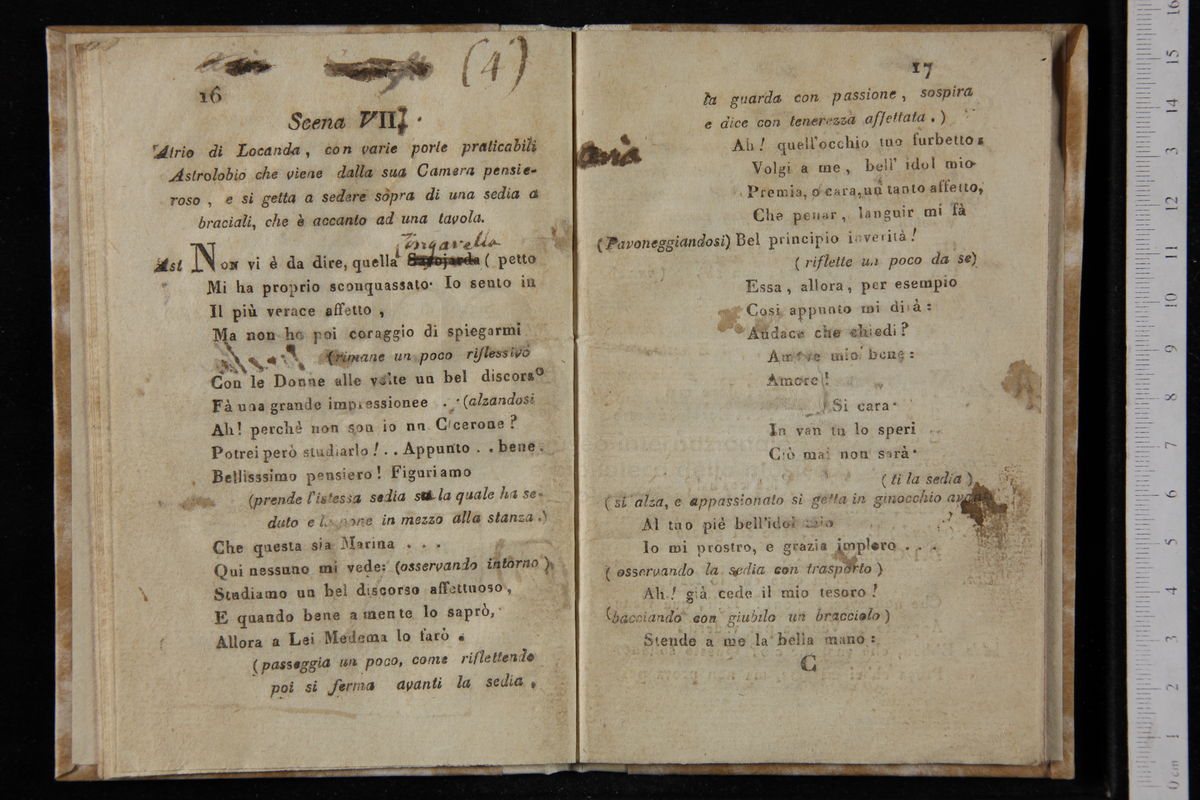 (4)
16
Scena VII.
Atrio di Locanda, con varie porte praticabili
Astrolobio che viene dalla sua Camera pensie-
roso, e si getta a sedere sopra di una sedia a
braciali, che è accanto ad una tavola.
Zingarella
Ast Non vi è da dire, quella Savojarda ( petto
Mi ha proprio sconquassato. Io sento in
Il più verace affetto,
Ma non ho poi coraggio di spiegarmi
(rimane un poco riflessivo
Con le Donne alle volte un bel discorso
Fà una grande impressionee . . (alzandosi
Ah! perchè non son io nn Cicerone?
Potrei però studiarlo!.. Appunto .. bene.
Bellissimo pensiero! Figuriamo
(prende l'istessa sedia su la quale ha se-
duto e la pone in mezzo alla stanza.)
Che questa sia Marina . . .
Qui nessuno mi vede: (osservando intorno)
Studiamo un bel discorso affettuoso,
E quando bene a mente lo saprò,
Allora a Lei Medema lo farò.
(passeggia un poco, come riflettendo
poi si ferma avanti la sedia,
17
la guarda con passione, sospira
e dice con tenerezza affettata.)
Aria
Ah! quell'occhio tuo furbetto
Volgi a me, bell' idol mio
Premia, o cara, un tanto affetto,
Che penar, languir mi fà
(Pavoneggiandosi) Bel principio inverità!
(riflette un poco da se)
Essa, allora, per esempio
Così appunto mi dirà:
Audace che chiedi?
Amore mio bene:
Amore!
Si cara.
In van tu lo speri
Ciò mai non sarà.
(ti la sedia)
(si alza, e appassionato si getta in ginocchio avan-
Al tuo piè bell'idol mio
Io mi prostro, e grazia imploro . . .
(osservando la sedia con trasporto)
Ah! già cede il mio tesoro!
(bacciando con giubilo un bracciolo)
Stende a me la bella mano:
C